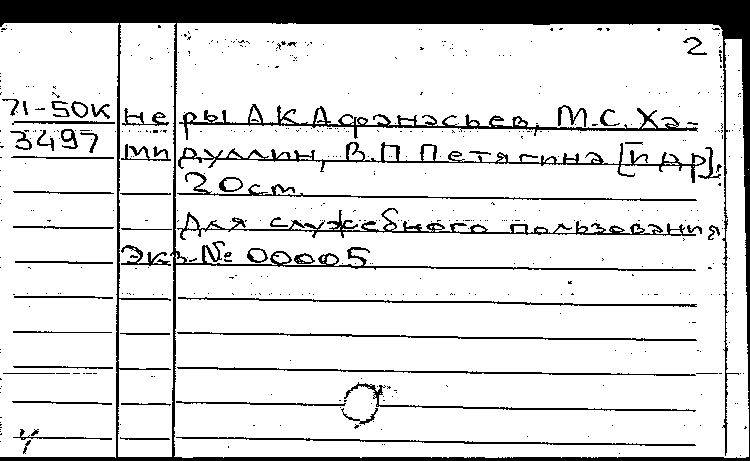 2
71-50К неры А.К.Афанасьев, М.С. Ха-
3497 мидуллин, В.П Петягина [и др].
20см.
Для служебного пользования
Экз.№ 00005